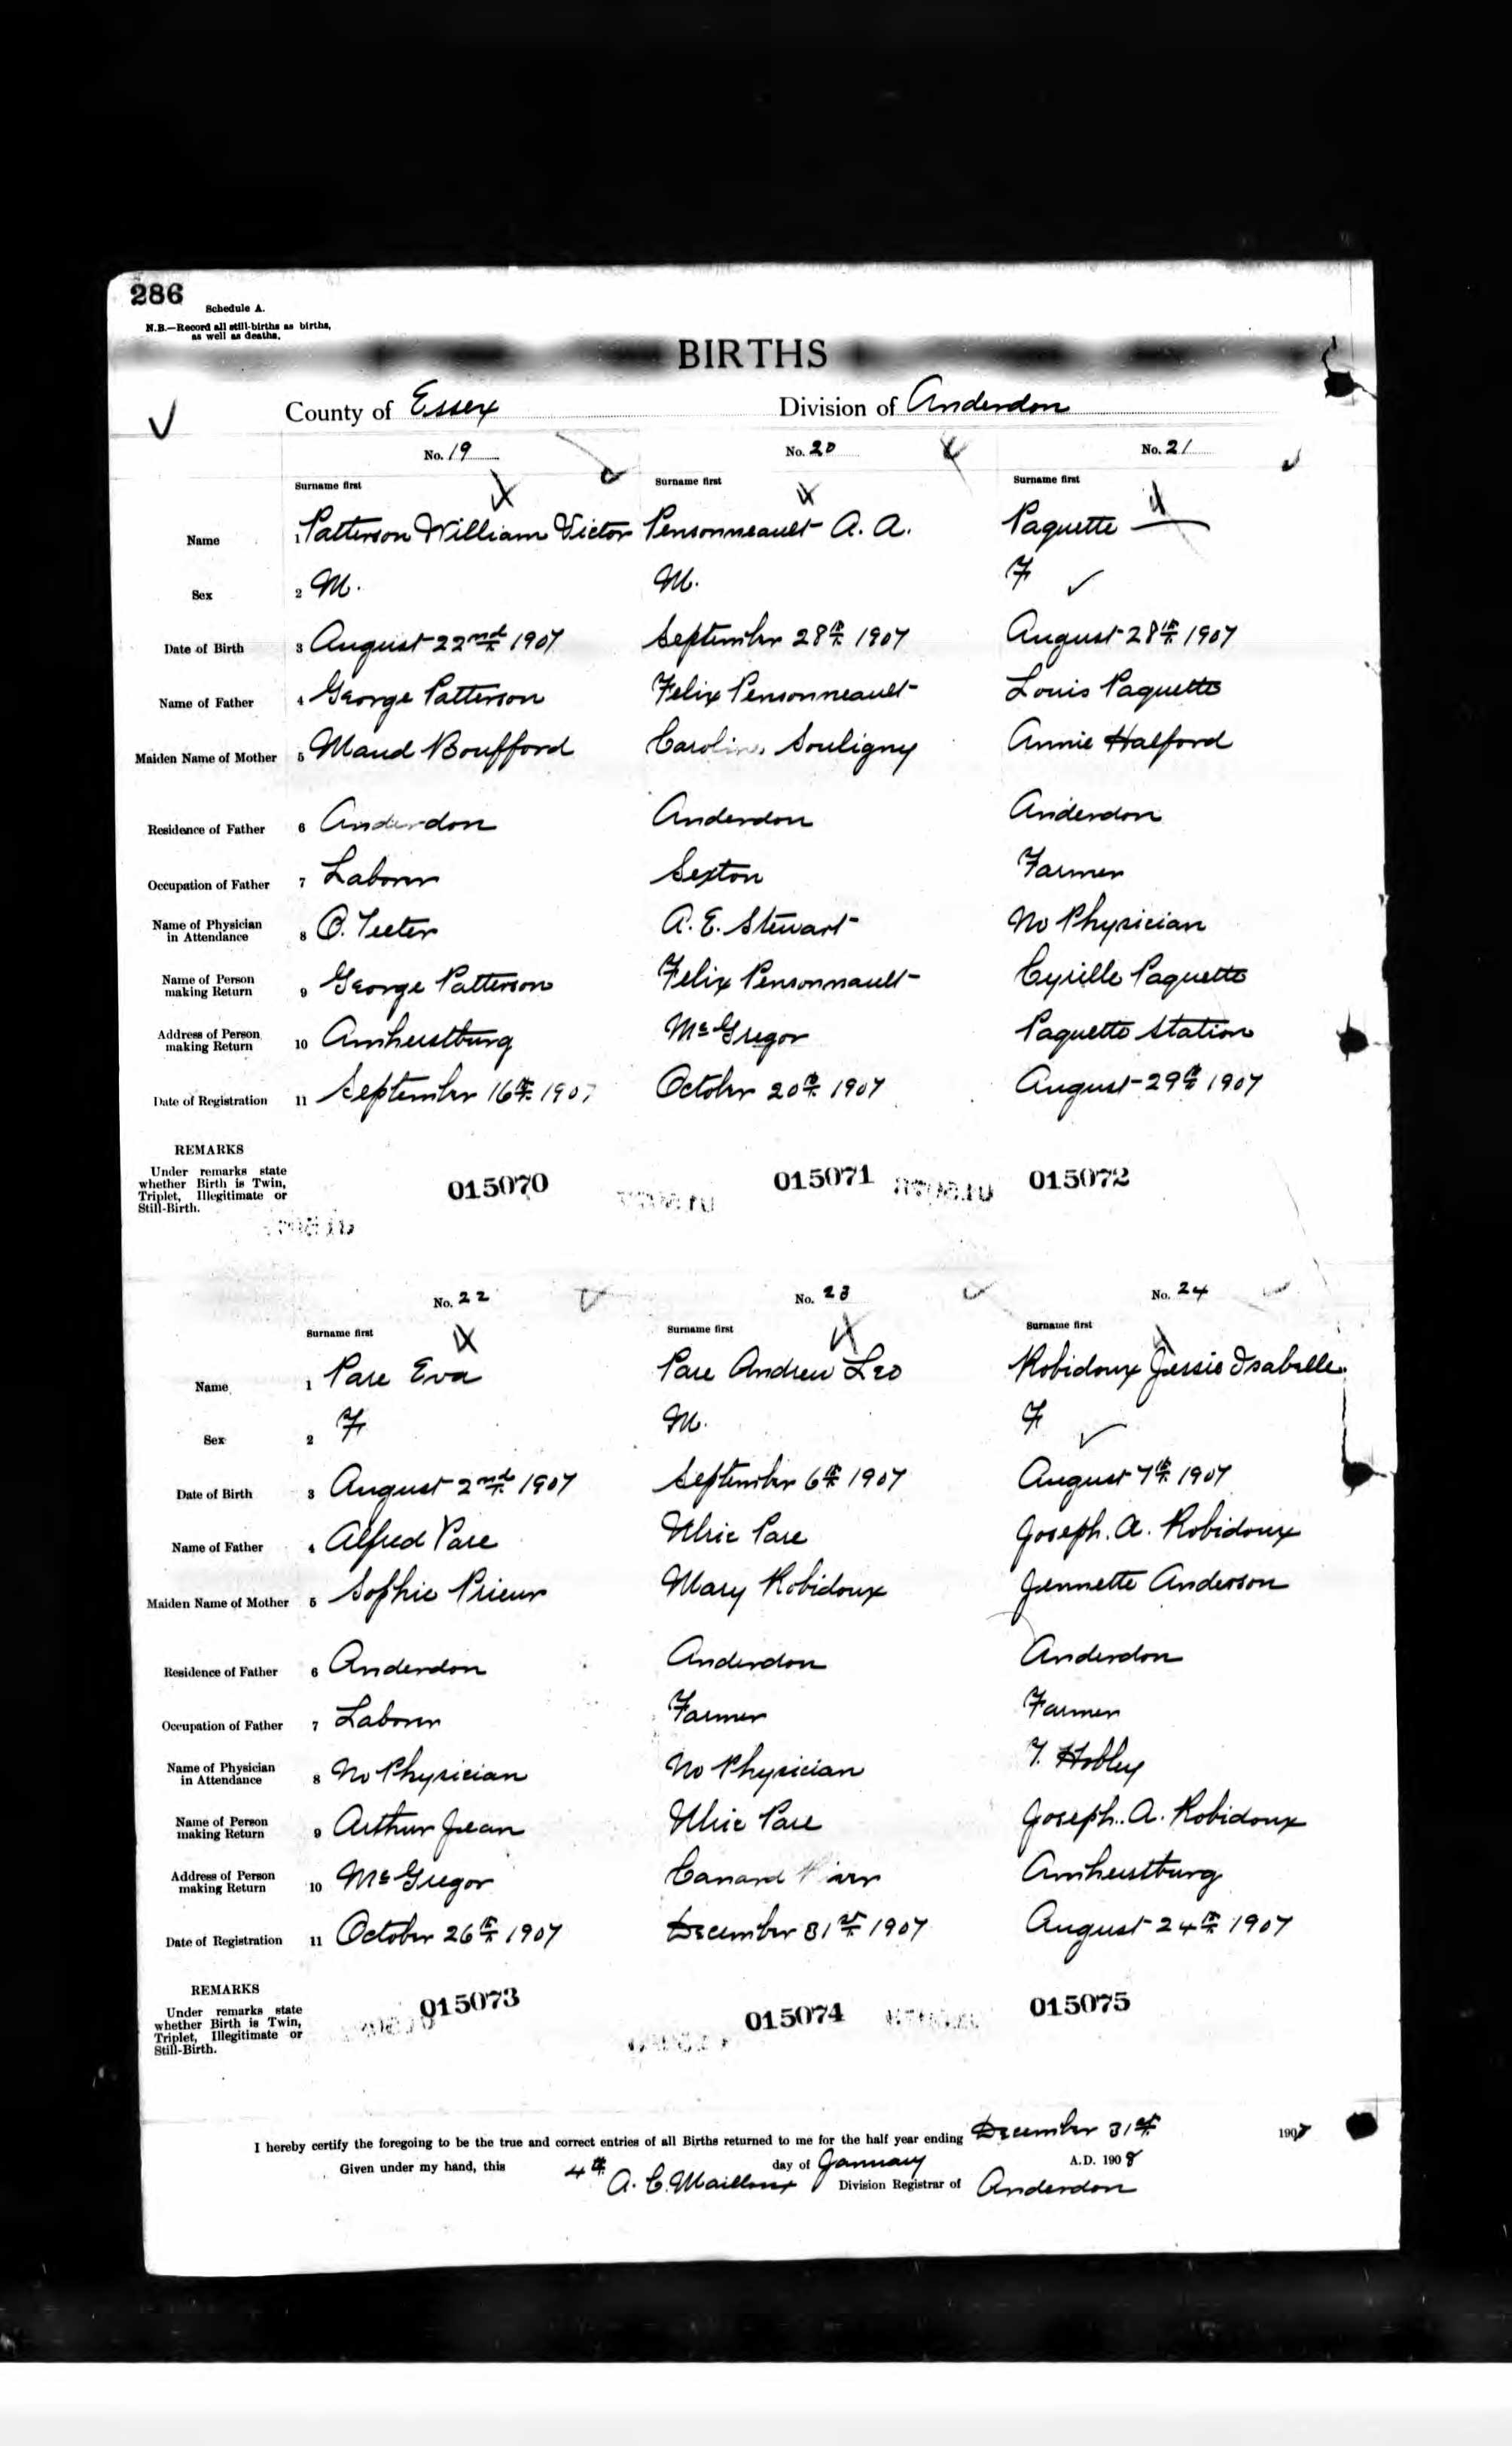 286
Schedule A.
N.B.—Record all still-births as births,
as well as deaths.
BIRTHS
County of Essex Division of Anderdon
No. 19 No. 20 No. 21
Surname first Surname first Surname first
Name 1 Patterson William Victor Pensonneault A. A. Paquette —
Sex 2 M. M. F
Date of Birth 3 August 22nd 1907 September 28th 1907 August 28th 1907
Name of Father 4 George Patterson Felix Pensonneault Louis Paquette
Maiden Name of Mother 5 Maud Boufford Caroline Souligny Annie Halford
Residence of Father 6 Anderdon Anderdon Anderdon
Occupation of Father 7 Laborer Sexton Farmer
Name of Physician
in Attendance 8 O. Teeter A. E. Stewart No Physician
Name of Person
making Return 9 George Patterson Felix Pensonnault Cyrille Paquette
Address of Person
making Return 10 Amherstburg McGregor Paquette Station
Date of Registration 11 September 16th 1907 October 20th 1907 August 29th 1907
REMARKS
Under remarks state
whether Birth is Twin,
Triplet, Illegitimate or
Still-Birth.
015070 015071 015072
No. 22 No. 23 No. 24
Surname first Surname first Surname first
Name 1 Pare Eva Pare Andrew Leo Robidoux Jessie Isabelle
Sex 2 F M. F
Date of Birth 3 August 2nd 1907 September 6th 1907 August 7th 1907
Name of Father 4 Alfred Pare Ulric Pare Joseph. A. Robidoux
Maiden Name of Mother 5 Sophie Prieur Mary Robidoux Jennette Anderson
Residence of Father 6 Anderdon Anderdon Anderdon
Occupation of Father 7 Laborer Farmer Farmer
Name of Physician
in Attendance 8 No Physician No Physician T. Hobley
Name of Person
making Return 9 Arthur Jean Ulric Pare Joseph. A. Robidoux
Address of Person
making Return 10 McGregor Canard River Amherstburg
Date of Registration 11 October 26th 1907 December 31st 1907 August 24th 1907
REMARKS
Under remarks state
whether Birth is Twin,
Triplet, Illegitimate or
Still-Birth.
015073 015074 015075
I hereby certify the foregoing to be the true and correct entries of all Births returned to me for the half year ending December 31st 1907
Given under my hand, this 4th day of January A.D. 1908
A. C. Mailloux Division Registrar of Anderdon